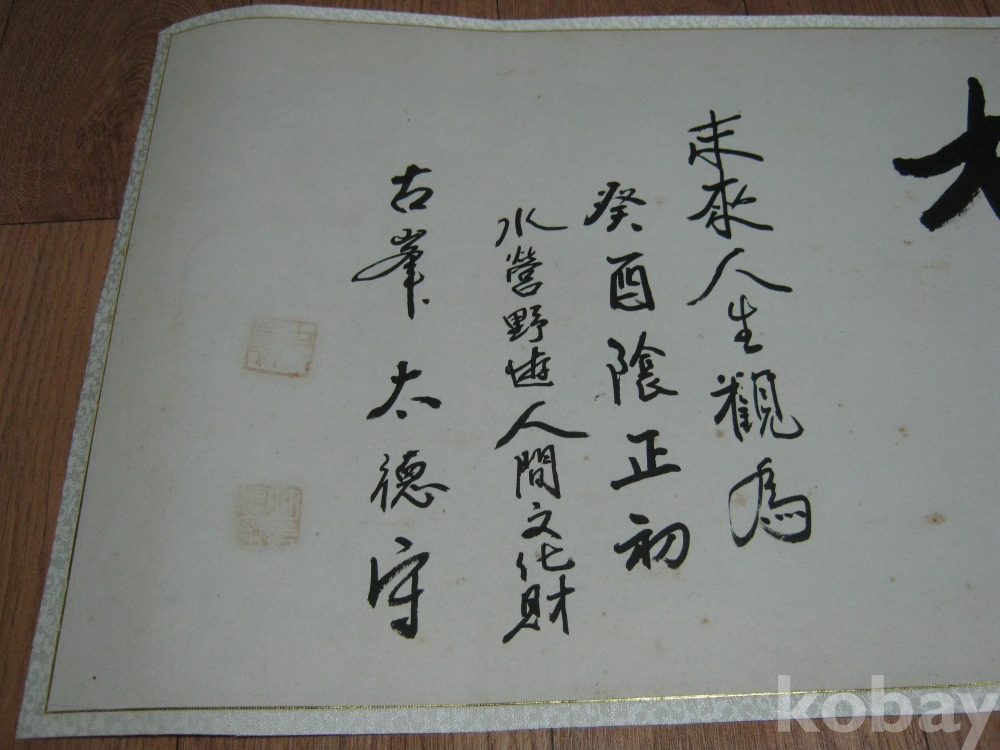 未來人生觀為
癸酉陰正初
水營野遊人間文化財
古峯 太德守
kobay